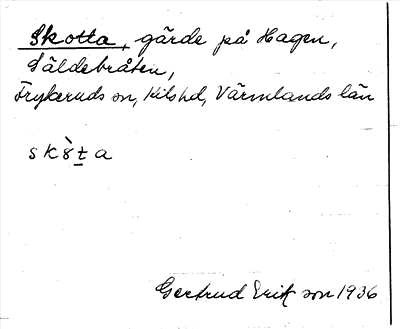 Skotta, gärde på Hagen,
Säldebråten,
Frykeruds sn, Kils hd, Värmlands län
skò̀t̲a
Gertrud Erikson 1936